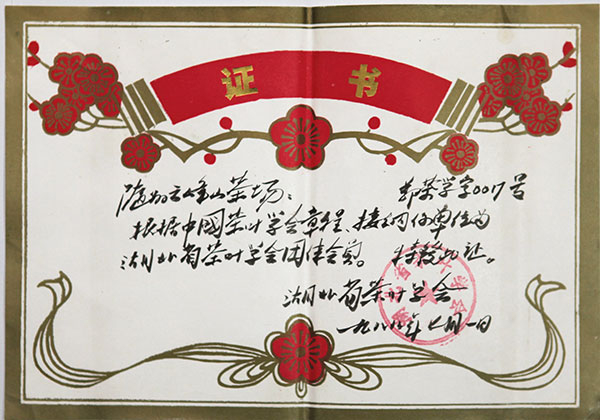 证书
鄂茶学字0017号
云峰山茶场：
根据中国茶叶学会章程、接纳你单位为
湖北省茶叶学会团体会员。特发此证。
湖北省茶叶学会
一九八八年七月一日